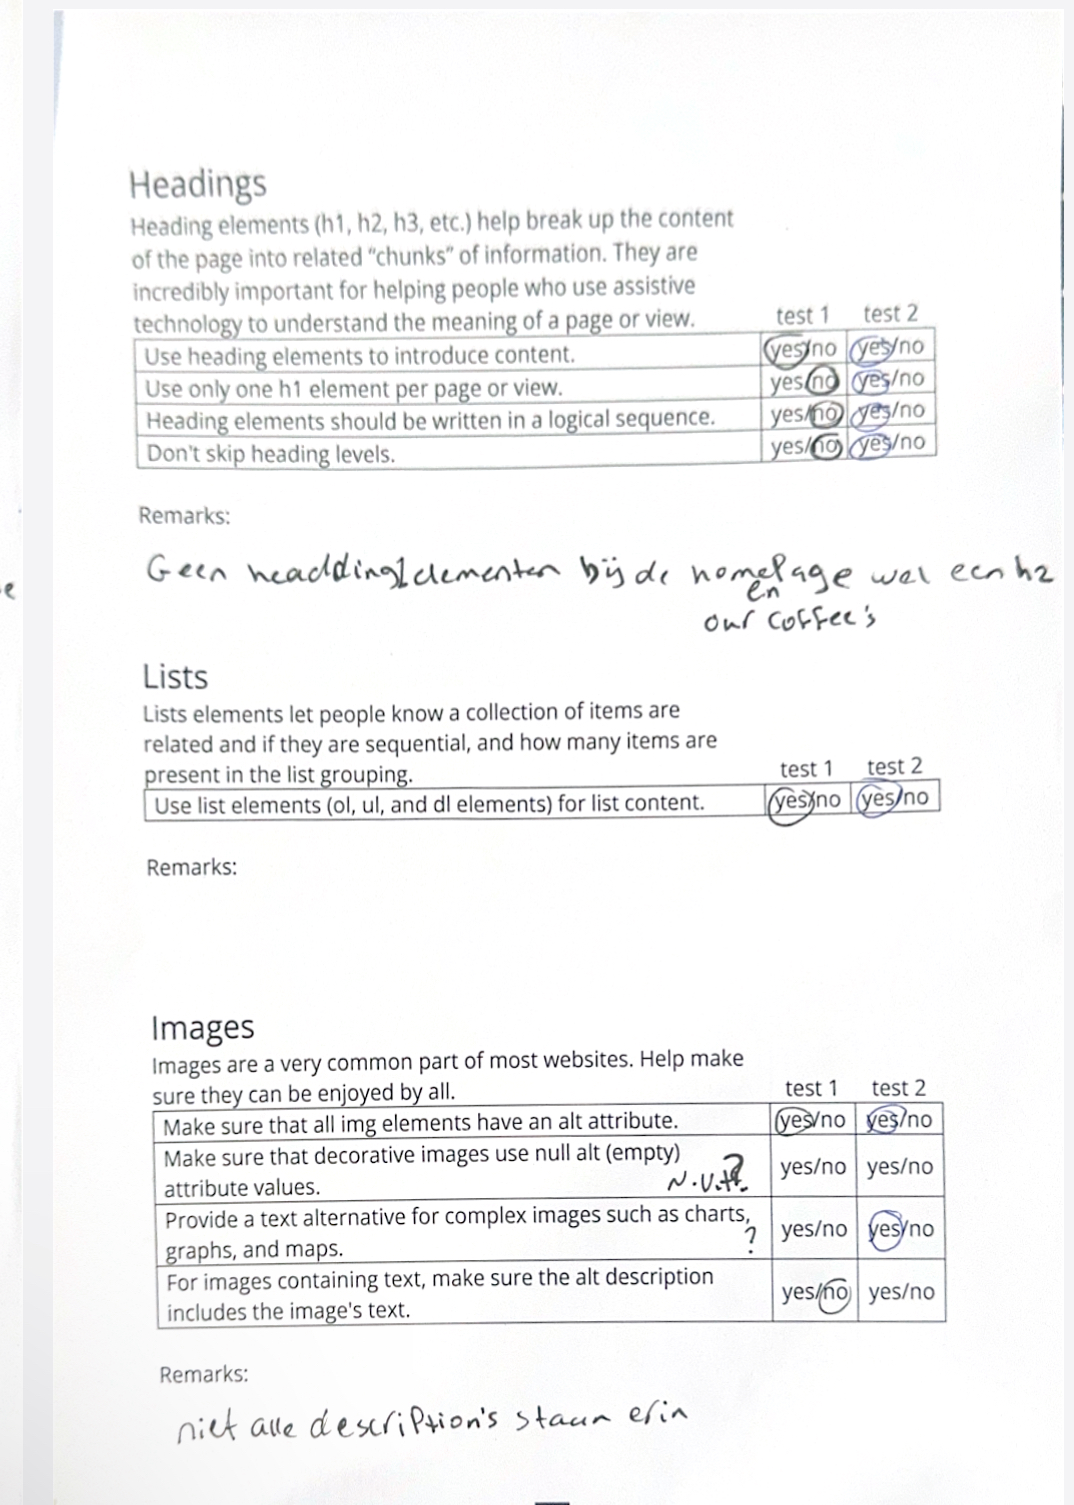 Headings
Heading elements (h1, h2, h3, etc.) help break up the content
of the page into related “chunks” of information. They are
incredibly important for helping people who use assistive
technology to understand the meaning of a page or view. test 1 test 2
Use heading elements to introduce content. yes/no yes/no
Use only one h1 element per page or view. yes/no yes/no
Heading elements should be written in a logical sequence. yes/no yes/no
Don't skip heading levels. yes/no yes/no
Remarks:
Geen headding1elementen bij de homepage wel een h2
en
our coffee's
Lists
Lists elements let people know a collection of items are
related and if they are sequential, and how many items are
present in the list grouping. test 1 test 2
Use list elements (ol, ul, and dl elements) for list content. yes/no yes/no
Remarks:
Images
Images are a very common part of most websites. Help make
sure they can be enjoyed by all. test 1 test 2
Make sure that all img elements have an alt attribute. yes/no yes/no
Make sure that decorative images use null alt (empty)
attribute values. ? yes/no yes/no
Provide a text alternative for complex images such as charts,
graphs, and maps. ? yes/no yes/no
For images containing text, make sure the alt description
includes the image's text. yes/no yes/no
Remarks:
niet alle description's staan erin